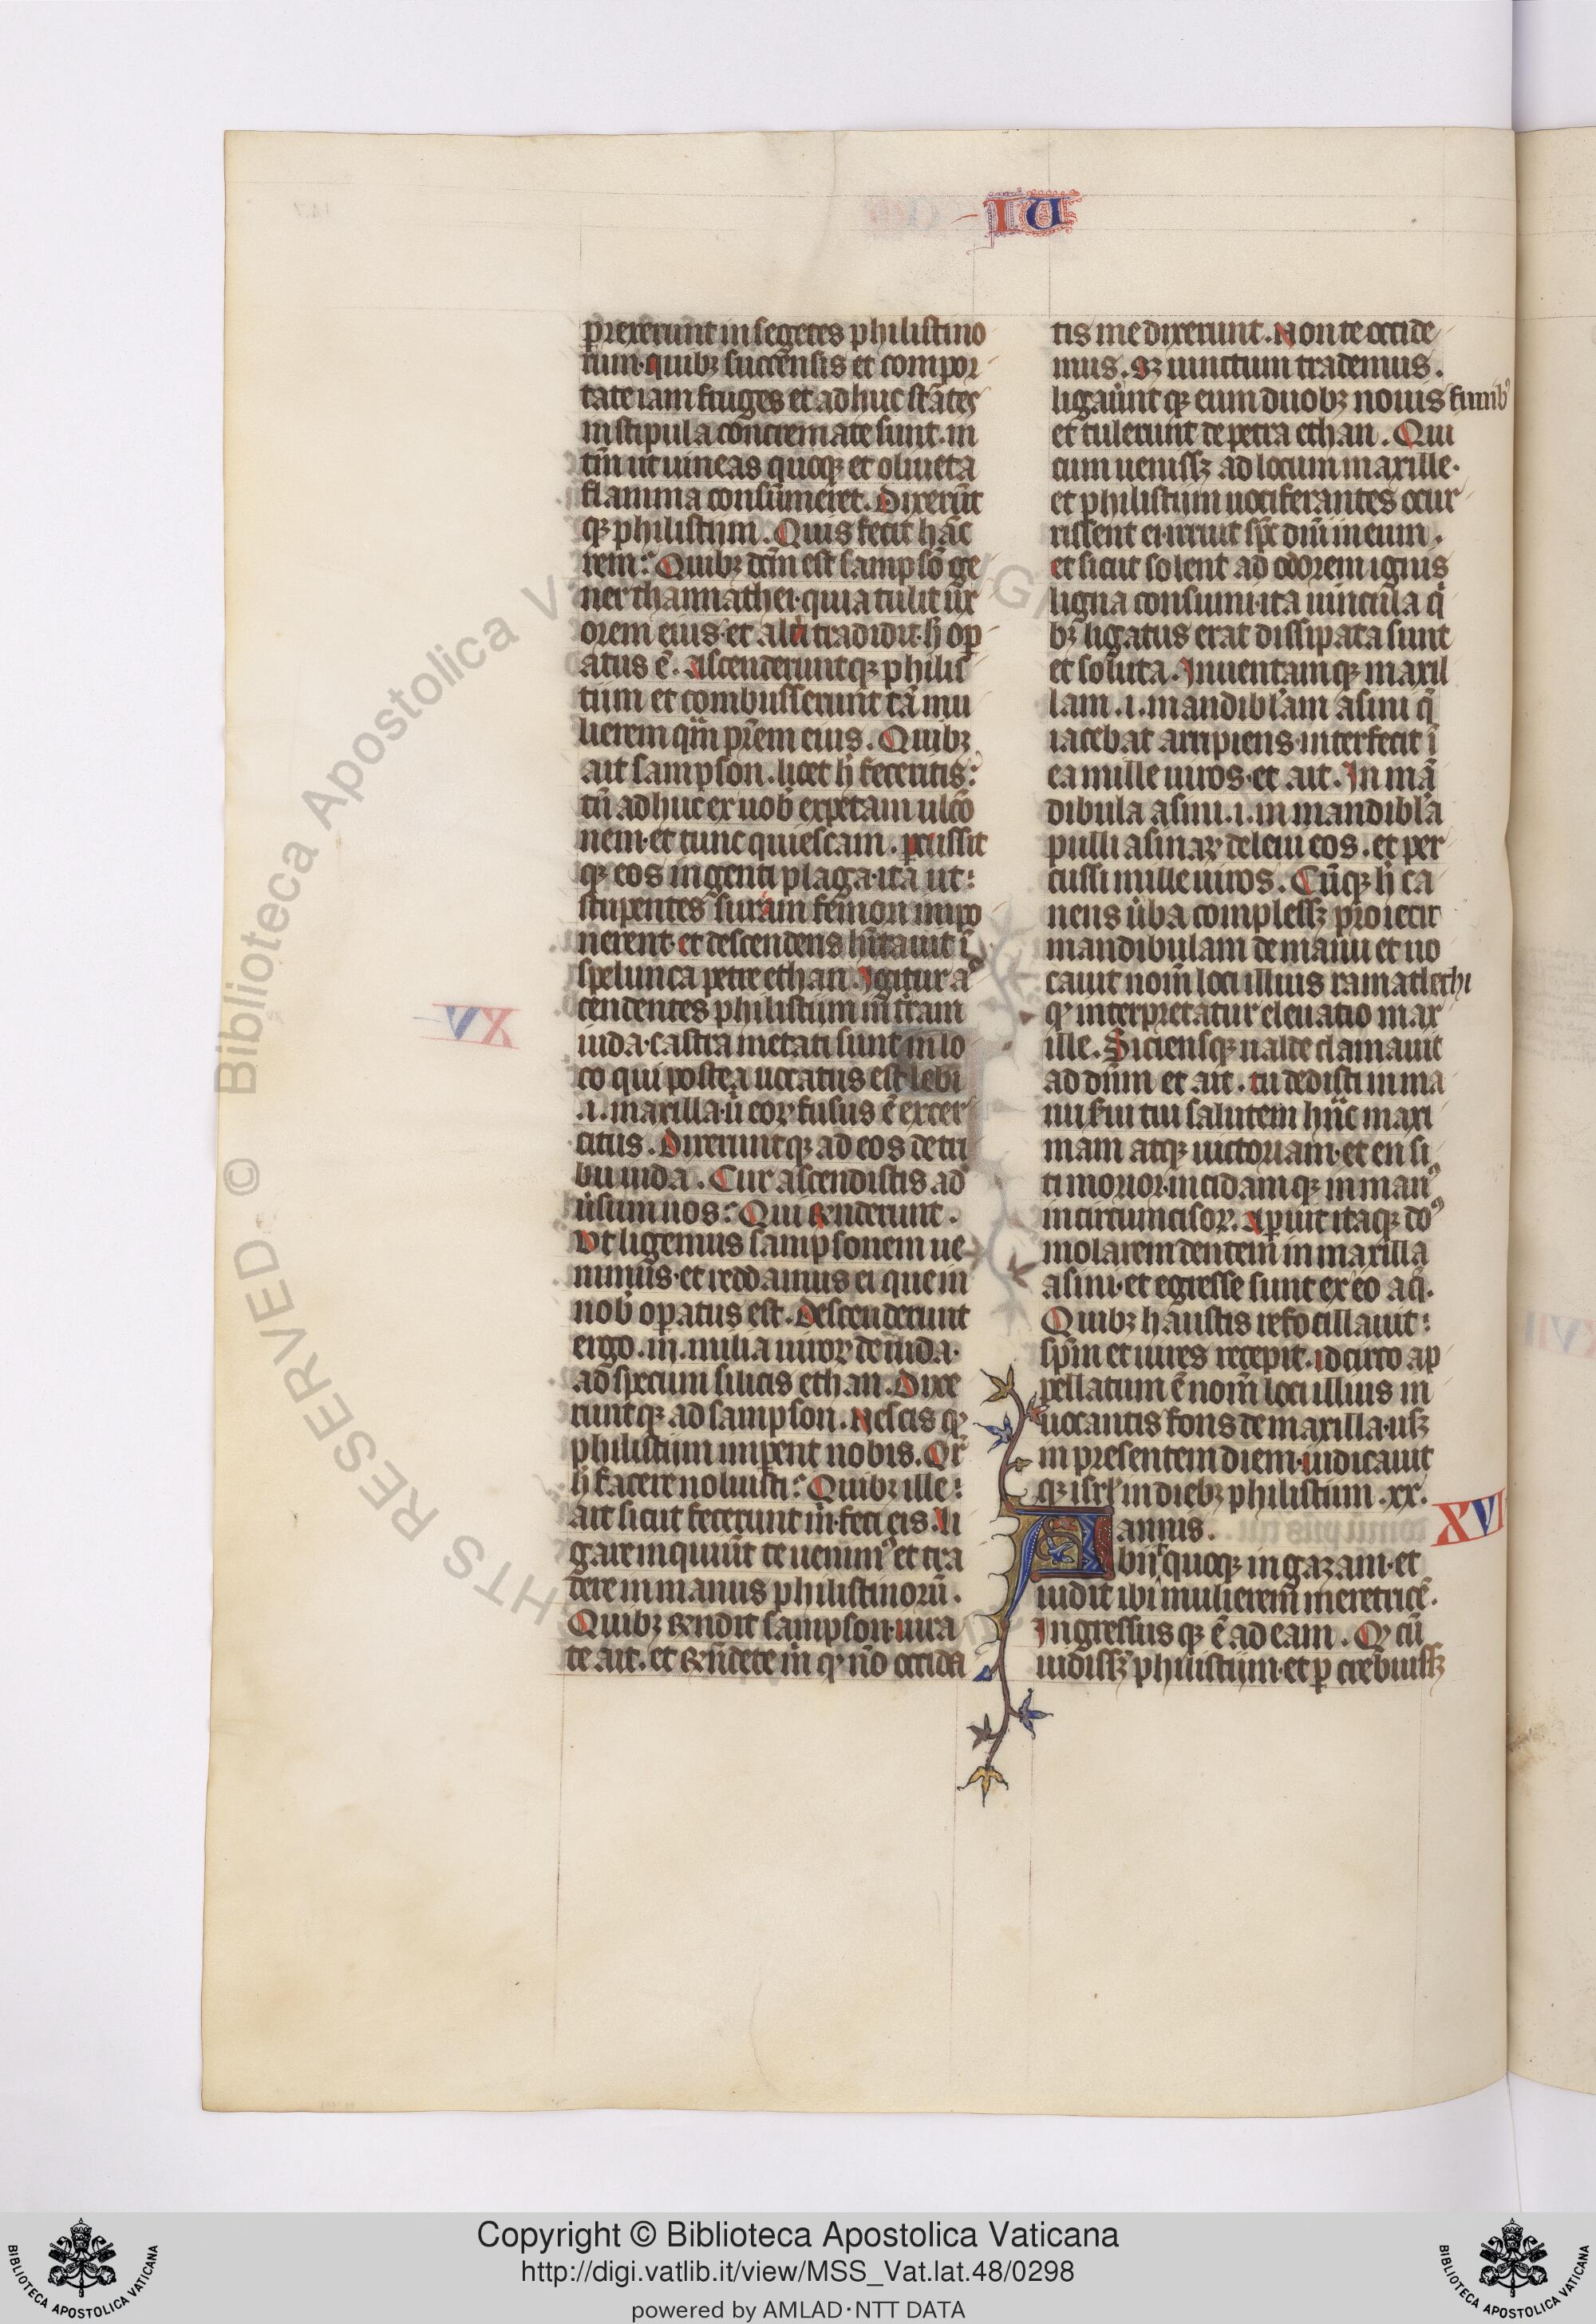 IU
prexerunt in segetes philistino
rum. quibꝫ succensis et compor
tate iam fruges et adhuc stātes
in stipula concremate sunt. in
tm̄ ut uineas quoqꝫ et oliueta
flamma consumeret. Dixerūt
qꝫ philistijm. Quis fecit hāc
rem? Quibꝫ dcm̄ est sampsō ge
ner thamnathei. quia tulit ux
orem eius. et alti tradidit. h̄ op
atus ē. Ascenderuntqꝫ philis
tiim et combusserunt tā mu
lierem qm̄ prēm eius. Quibꝫ
ait sampson. licet h̄ feceritis:
tn̄ adhuc ex uob̄ expetam ulcō
nem. et tunc quiescam. percussit
qꝫ eos ingenti plaga. ita ut:
stupentes suram femori impo
nerent. et descendens hītauit ī
spelunca petre ethan. Igitur aˢ
cendentes philistijm in tr̄am
iuda. castra metati sunt in lo
co qui postea uocatus est lehi
.i. maxilla. ū eoꝝ fusus ē exer
citus. Dixeruntqꝫ ad eos de tri
bu iuda. Cur ascendistis ad
ūsum nos? Qui rn̄derunt.
Ut ligemus sampsonem ue
nimus. et reddamus ei que in
nob̄ opatus est. Descenderunt
ergo .iii. milia uiroꝝ de iuda.
ad specum silicis ethan. Dixe
runtqꝫ ad sampson. Nescis qꝫ
philistijm imperent nobis. Qr̄
h̄ facere noluisti? Quibꝫ ille:
ait sicut fecerunt m̄. feci eis. Li
gare inquiunt te uenimꝰ et tra
dere in manus philistinorū.
Quibꝫ rn̄dit sampson. iura
te ait. et rn̄dete m̄ qꝫ nō occida
XV
tis me dixerunt. Non te occide
mus. sꝫ uinctum trademus.
ligauūntqꝫ eum duobꝫ nouis funibꝰ
et tulerunt de petra ethan. Qui
cum uenissꝫ ad locum maxille.
et philistijm uociferantes occur
rissent ei. irruit sp̄c dn̄i in eum.
et sicut solent ad odorem ignis
ligna consumi. ita uincula q̄
bꝫ ligatus erat dissipata sunt
et soluta. Inuentamqꝫ maxil
lam .i. mandibl̄am asini q̄
iacebat arripiens. interfecit ī
ea mille uiros. et ait. In mā
dibula asini .i. in mandibl̄a
pulli asinaꝝ deleui eos. et per
cussi mille uiros. Cūqꝫ h̄ ca
nens ūba complessꝫ proiecit
mandibulam de manu et uo
cauit nom̄ loci illius ramatlechi
qꝫ interpretatur eleuatio max
ille. Siciensqꝫ ualde clamauit
ad dn̄m et ait. tu dedisti in ma
nu s̄ui tui salutem hāc maxi
mam atqꝫ uictoriam. et en si
ti morior. incidamqꝫ in manꝰ
incircumcisoꝝ. Aperuit itaqꝫ doꝰ
molarem dentem in maxilla
asini. et egresse sunt ex eo aq̄.
Quibꝫ haustis refocillauit:
spm̄ et uires recepit. idcirco ap
pellatum ē nom̄ loci illius in
uocantis fons de maxilla. usꝫ
in presentem diem. iudicauit
qꝫ isrl̄ in diebꝫ philistiim .xx.
annis.
XVI
Abijt quoqꝫ in gazam. et
uidit ibi mulierem meretricē.
Ingressusqꝫ ē ad eam. Qꝫ cū
uidissꝫ philistijm. et percrebuissꝫ
© Biblioteca Apostolica Vaticana
RIGHTS RESERVED
Copyright © Biblioteca Apostolica Vaticana
http://digi.vatlib.it/view/MSS_Vat.lat.48/0298
powered by AMLAD·NTT DATA
BIBLIOTECA APOSTOLICA VATICANA
BIBLIOTECA APOSTOLICA VATICANA